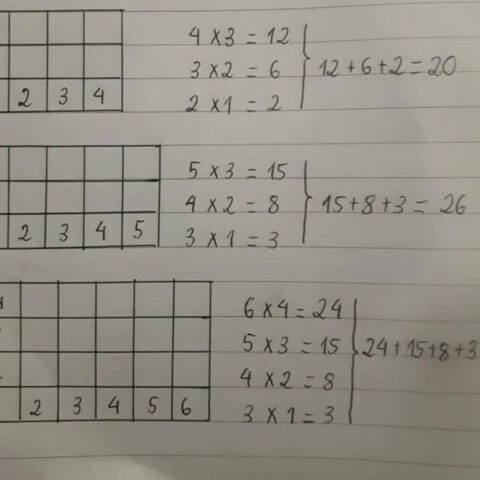 4 x 3 = 12
3 x 2 = 6
2 x 1 = 2
12 + 6 + 2 = 20
2 3 4
5 x 3 = 15
4 x 2 = 8
3 x 1 = 3
15 + 8 + 3 = 26
2 3 4 5
6 x 4 = 24
5 x 3 = 15
4 x 2 = 8
3 x 1 = 3
24 + 15 + 8 + 3
2 3 4 5 6